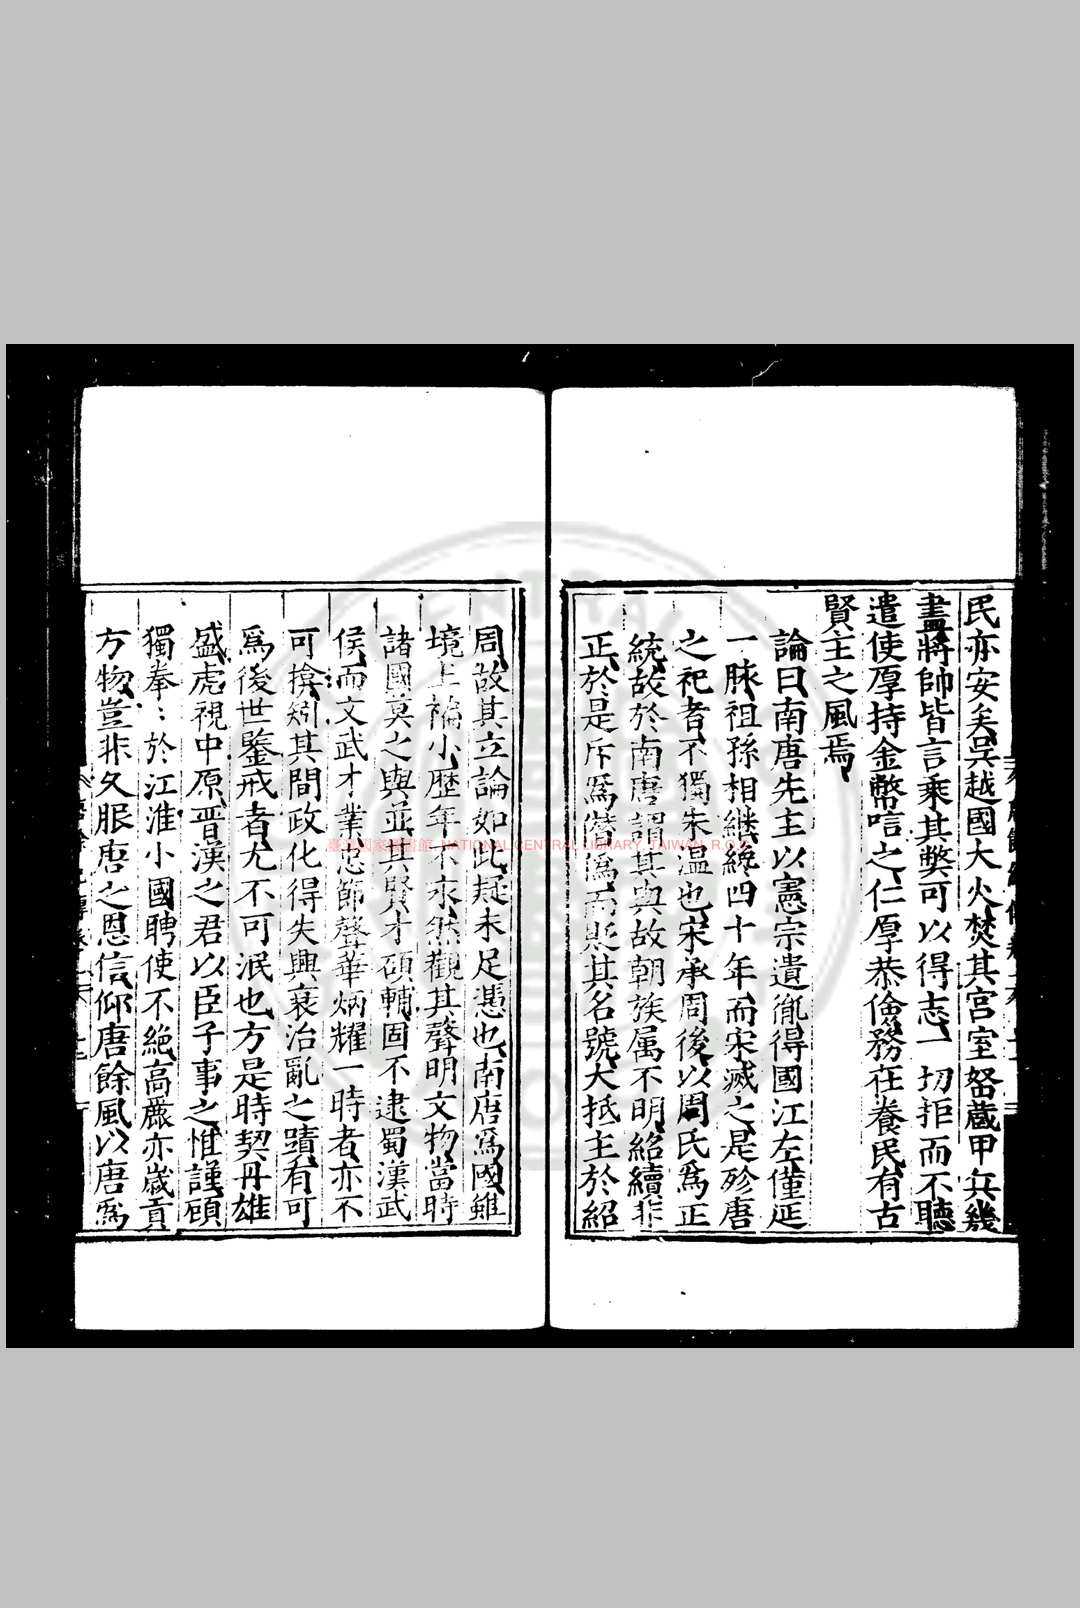 民亦安矣吳越國大火焚其宮室帑蔵甲兵幾
盡將帥皆言乘其獘可以得志一切拒而不聽
遣使厚持金幣唁之仁厚恭儉務在養民有古
賢主之風焉
論曰南唐先主以憲宗遺胤得國江左僅延
一脉祖孫相継終四十年而宋滅之是殄唐
之祀者不獨朱温也宋承周後以周氏為正
統故於南唐謂其與故朝族属不明紹續非
正於是斥為僣偽而貶其名號大抵主於紹
周故其立論如此疑未足憑也南唐爲國雖
境土褊小歷年不永然觀其聲明文物當時
諸國莫之與並其賢才碩輔固不逮蜀漢武
侯而文武才業忠節聲華炳耀一時者亦不
可揜矧其間政化得失興衰治亂之蹟有可
爲後世鑒戒者尤不可泯也方是時契丹雄
盛虎視中原晋漢之君以臣子事之惟謹顧
獨拳〻於江淮小國聘使不絶高麗亦歲貢
方物豈非久服唐之恩信仰唐餘風以唐爲
臺灣國家圖書館 NATIONAL CENTRAL LIBRARY, TAIWAN, R.O.C